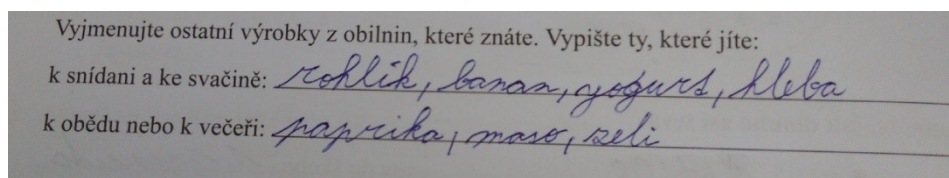 Vyjmenujte ostatní výrobky z obilnin, které znáte. Vypište ty, které jíte:
k snídani a ke svačině: rohlik, banan, yogurt, hleba
k obědu nebo k večeři: paprika, maso, zeli